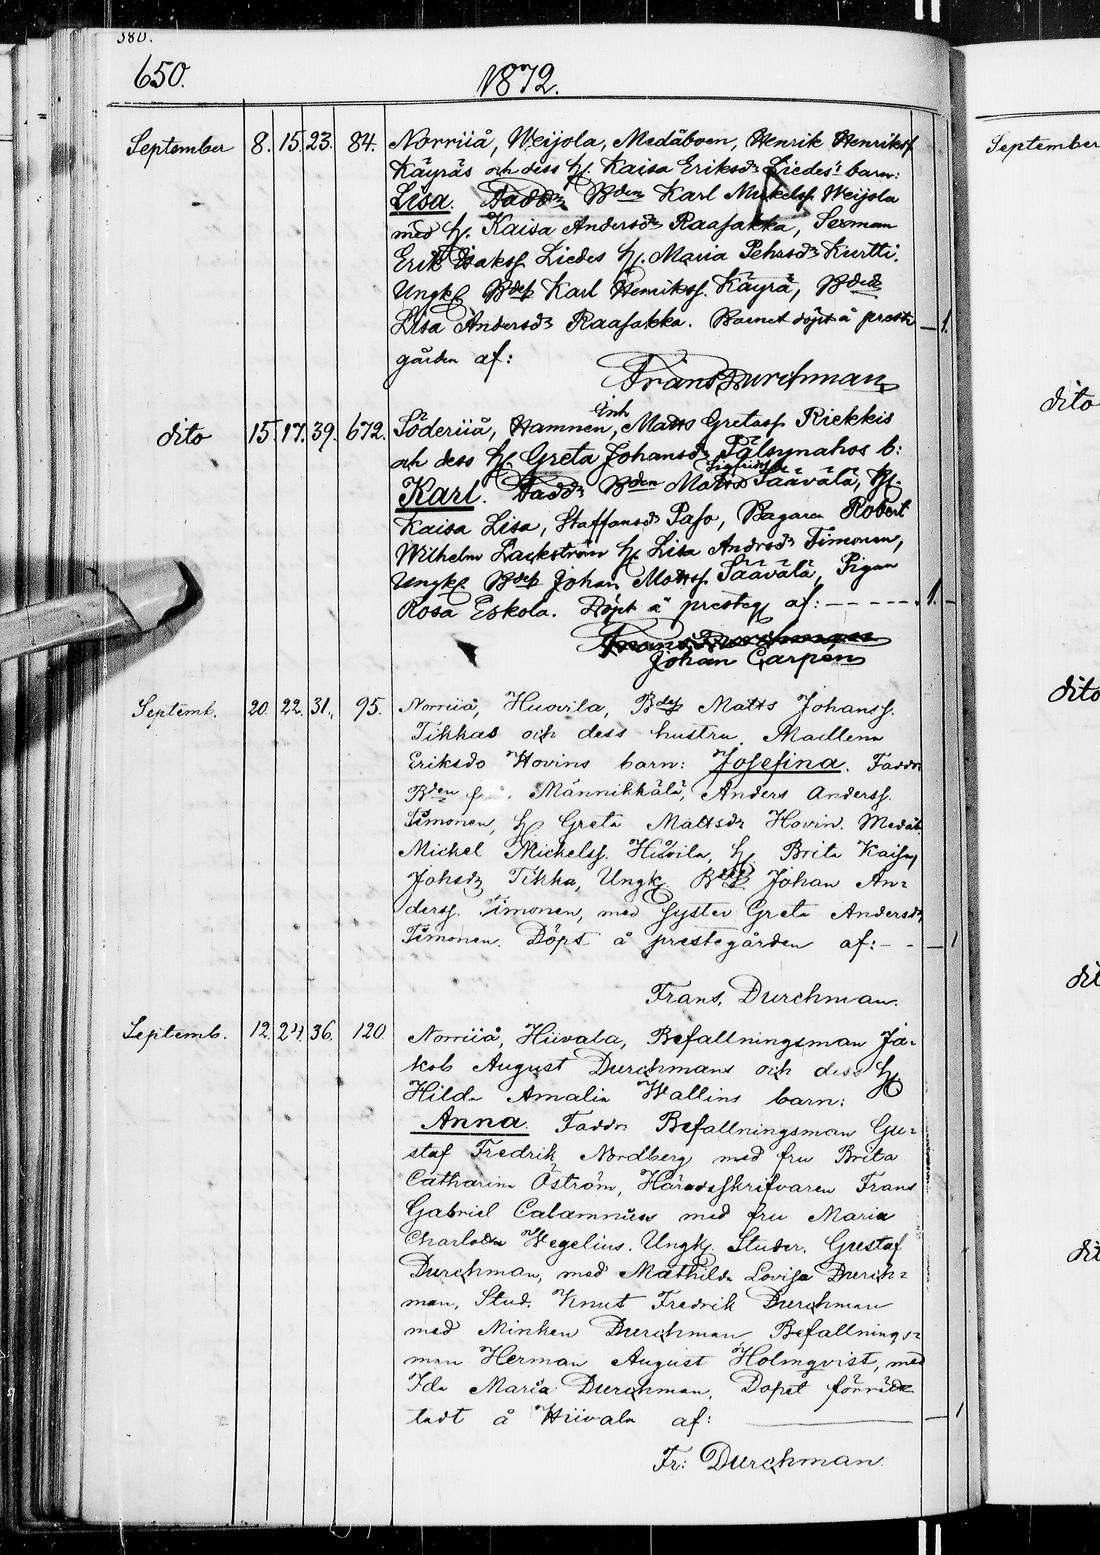 380.
650.
1872.
September 8. 15. 23. 84. Norriiå, Weijola, Medåboen, Henrik Henrikss
Käyräs och dess H. Kaisa Eriksdr Liedes' barn:
Lisa. Faddr Bden Karl Mickelss. Weijola
med H. Kaisa Andersdr Raasakka, Sexman
Erik Isakss Liedes H. Maria Pehrsdr Kurtti.
Ungk. Bdes Karl Henrikss. Käyrä, Bded
Lisa Andersdr Raasakka. Barnet döpt å prest- 1.
gården af:
Frans Durchman
dito 15. 17. 39. 672. Söderiiå, Hamnen, inh Matts Gretass Riekkis
och dess H. Greta Johansdr b:
Karl. Faddr Bden Matts Sigfridss Säävälä, H.
Kaisa Lisa, Staffansdr Paso, Bagaren Robert
Wilhelm Lackström H. Lisa Andrsdr Timonen,
Ungk. Bdes Johan Mattss. Säävälä, Pigan
Rosa Eskola. Döpt å presteg af: - - - - - 1.
Johan Carpén
Septemb. 20. 22. 31. 95. Norriiå, Huovila, Bdes Matts Johanss.
Tikkas och dess hustru Madlena
Eriksdo Hovins barn: Josefina. Faddr
Bden Männikkälä, Anders Anderss.
Timonen, H. Greta Mattsdr Hovin. Medåb.
Mickel Mickelss. Huovila, H. Brita Kaisa
Johsdr Tikka, Ungk. Bdes Johan An-
derss. Timonen, med syster Greta Andersdr
Timonen. Döpt å prestegården af: - - 1
Frans Durchman.
Septemb. 12. 24. 36. 120. Norriiå, Hiivala, Befallningsman Ja-
kob August Durchmans och dess H
Hilda Amalia Wallins barn:
Anna. Faddr Befallningsman Gu-
staf Fredrik Nordberg med fru Brita
Catharina Öström, Häradsskrifvaren Frans
Gabriel Calamnius med fru Maria
Charlotta Wegelius. Ungk. Studer. Gustaf
Durchman, med Mathilda Lovisa Durch-
man, Stud. Knut Fredrik Durchman
med Minken Durchman, Befallnings-
man Herman August Holmqvist, med
Ida Maria Durchman. Dopet förrät-
tadt å Hiivala af: 1
Fr: Durchman.
September
dito
dito